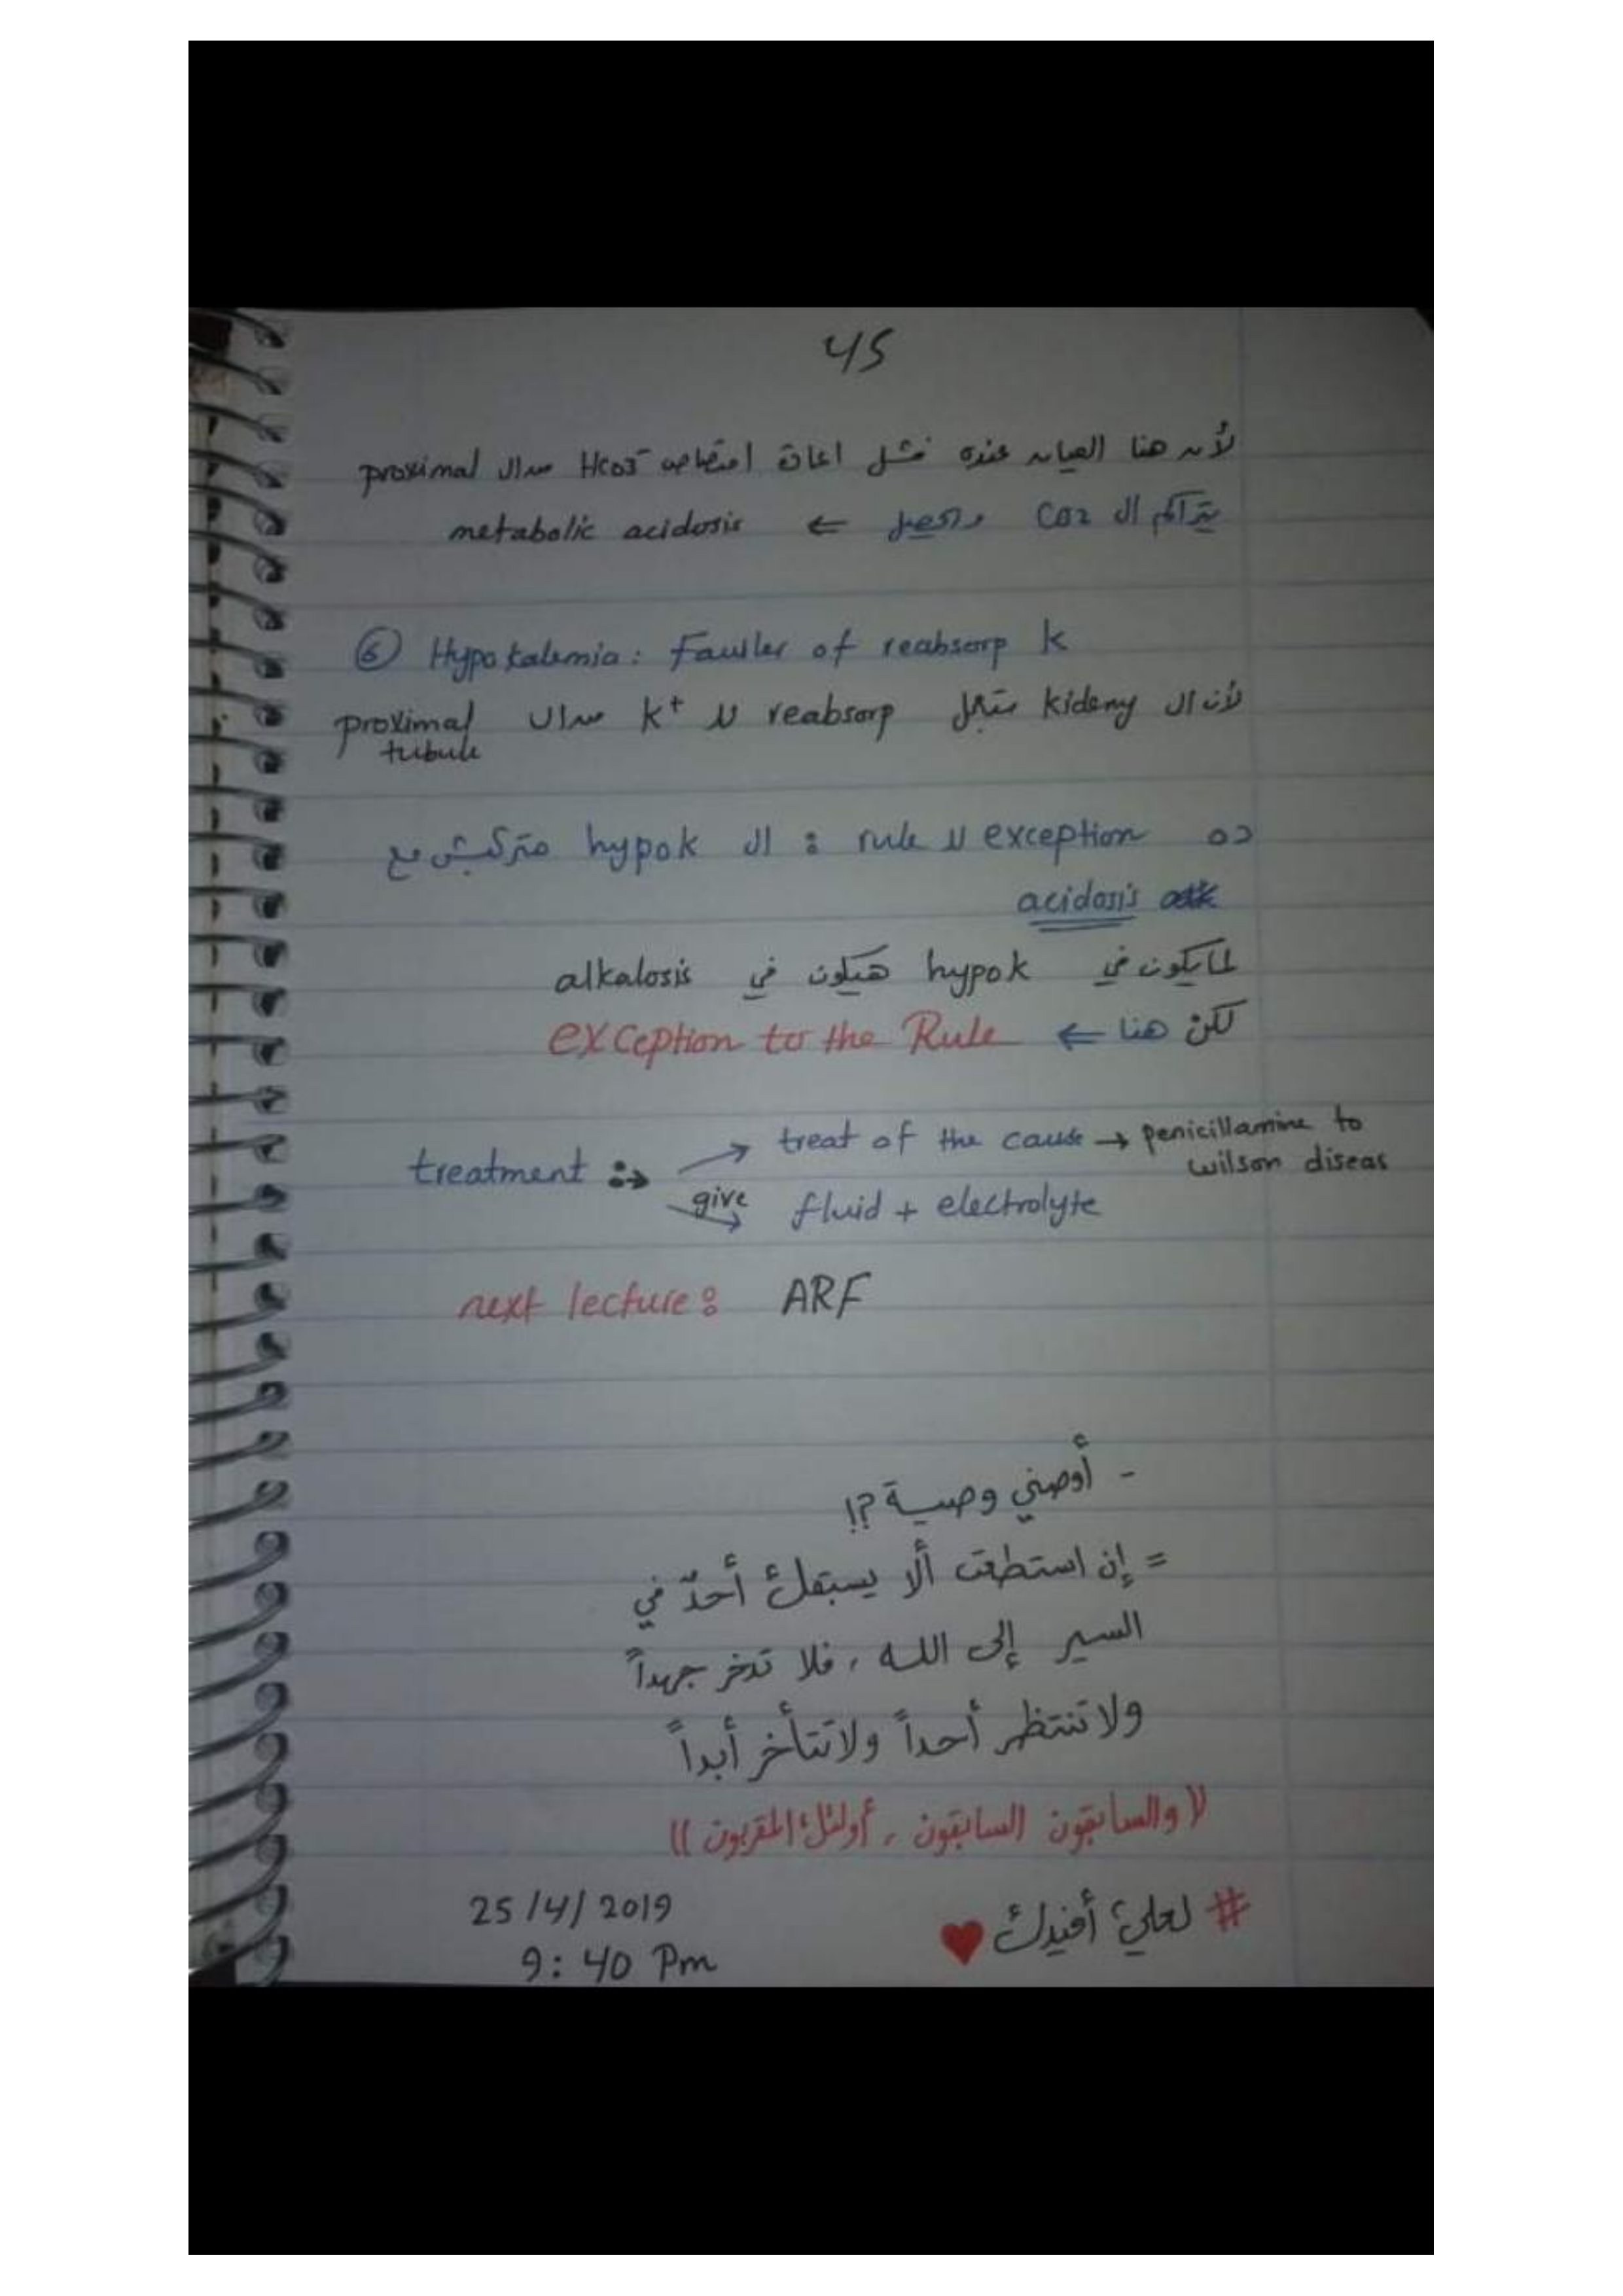 45
لأن هنا العيان عنده فشل اعادة امتصاص HCO3- من ال proximal
يتراكم ال CO2 ويحصل ⇐ metabolic acidosis
⑥ Hypokalemia: Fauiler of reabsorp K
لأن ال kideny متبجل reabsorp لل K+ من ال proximal
tubule
ده exception لل rule : ال hypok متركبش مع
acidosis
لما يكون في hypok هيكون في alkalosis
لكن هنا ⇐ exception to the Rule
treatment :→ treat of the cause → penicillamine to
wilson diseas
give fluid + electrolyte
next lecture: ARF
- أوصني وصية ؟!
= إن استطعت ألا يسبقك أحدٌ في
السير إلى الله ، فلا تدخر جهداً
ولا تنتظر أحداً ولا تتأخر أبداً
(( والسابقون السابقون ، أولئك المقربون ))
# لعلي أفيدك ♥
25/4/2019
9:40 Pm